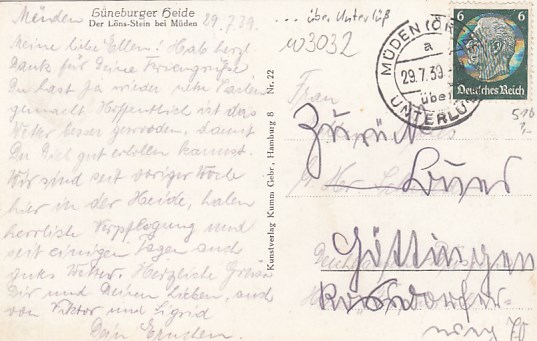 Lüneburger Heide
Der Löns-Stein bei Müden
Müden 29.7.39.
Meine liebe Ellen! Hab herzl.
Dank für Deine Feriengrüße.
Du hast ja wieder
gemacht. Hoffentlich ist das
Wetter besser geworden, damit
Du Dich gut erholen kannst.
Wir sind seit voriger Woch
hier in der Heide, haben
herrliche Verpflegung und
seit einigen Tagen auch
gutes Wetter. Herzliche Grüße
Dir und Deinen Lieben, auch
von Viktor und Sigrid
Dein
Kunstverlag Kumm Gebr., Hamburg 8 Nr. 22
... über Unterlüß
W3032
MÜDEN (ÖR
a
29.7.39
über
UNTERLÜ
6 6
Deutsches Reich
Frau
Zurück
Göttingen